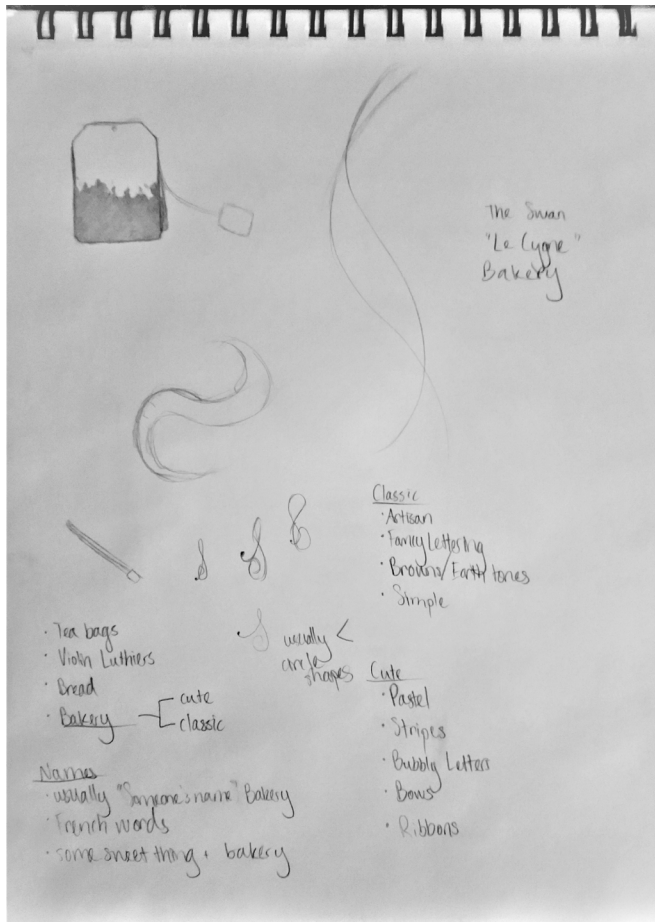 The Swan
"Le Cygne"
Bakery
Classic
· Artisan
· Fancy Lettering
· Browns/Earth tones
· Simple
· Tea bags
· Violin Luthiers
· Bread
· Bakery
cute
classic
usually <
circle
shapes
Cute
· Pastel
· Stripes
· Bubbly Letters
· Bows
· Ribbons
Names
· usually "Someone's name" Bakery
· French words
· some sweet thing + bakery